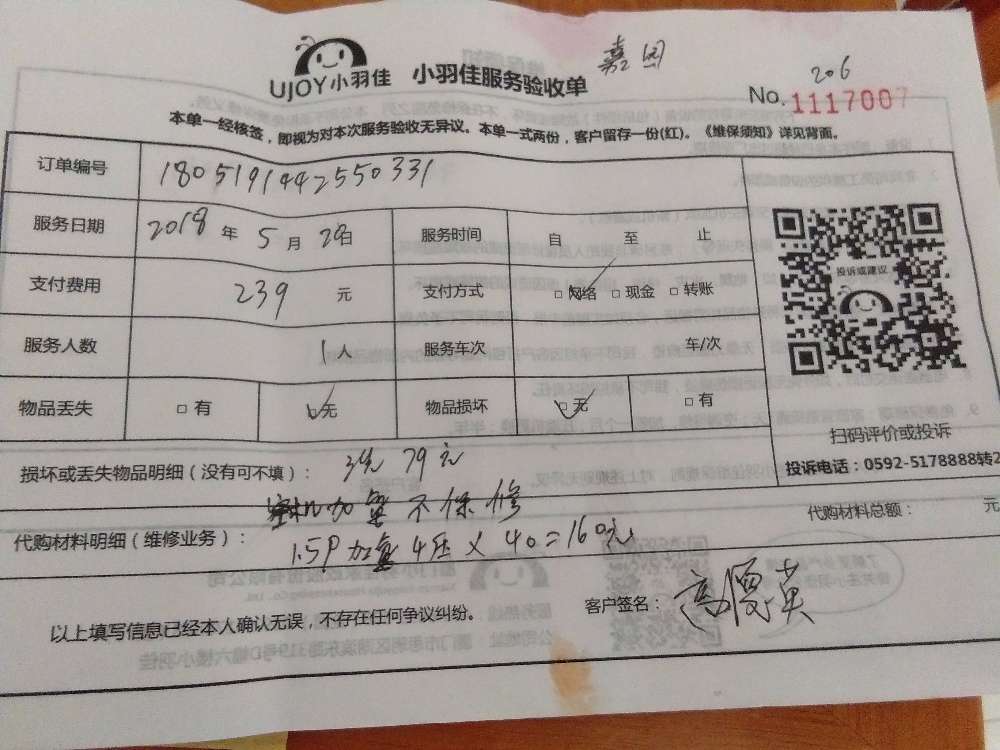 嘉园
206
UJOY小羽佳 小羽佳服务验收单
No. 1117007
本单一经核签，即视为对本次服务验收无异议。本单一式两份，客户留存一份(红)。《维保须知》详见背面。
订单编号 1805191442550331
服务日期 2018 年 5 月 20日 服务时间 自 至 止
支付费用 239 元 支付方式 □网络 □现金 □转账
投诉或建议
服务人数 1人 服务车次 车/次
物品丢失 □有 □无 物品损坏 □无 □有
扫码评价或投诉
投诉电话：0592-5178888转2
损坏或丢失物品明细（没有可不填）： 79元
加氟不保修
代购材料明细（维修业务）： 1.5P加氟4压×40=160元
代购材料总额： 元
以上填写信息已经本人确认无误，不存在任何争议纠纷。
客户签名：